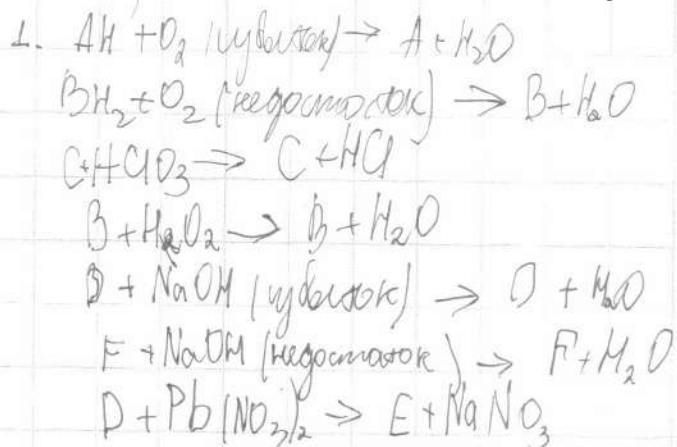 1. AH + O₂ (избыток) → A + H₂O
BH₂ + O₂ (недостаток) → B + H₂O
C + HClO₃ → C + HCl
B + H₂O₂ → B + H₂O
D + NaOH (избыток) → D + H₂O
F + NaOH (недостаток) → F + H₂O
D + Pb(NO₃)₂ → E + NaNO₃